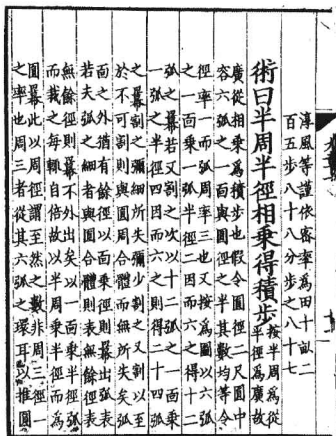 淳風等謹依密率為田十畝二
百五步八十八分步之八十七
術曰半周半徑相乘得積步
按半周為從
半徑為廣故
廣從相乘為積步也假令圓徑二尺圓中
容六弧之一面與圓徑之半其數均等令
徑率一而弧周率三也又按為圖以六弧
之一面乘一弧半徑二因而六之得十二
弧之冪若又割之次以十二弧之一面乘
一弧之半徑四因而六之則得二十四弧
之冪割之彌細所失彌少割之又割以至
於不可割則與圓周合體而無所失矣弧
面之外猶有餘徑以面乘徑則冪出弧表
若夫弧之細者與圓合體則表無餘徑表
無餘徑則冪不外出矣以一面乘半徑弧
而裁之每輒自倍故以半周乘半徑而為
圓冪此以周徑謂至然之數非周三徑一
之率也周三者從其六弧之環耳以推圓